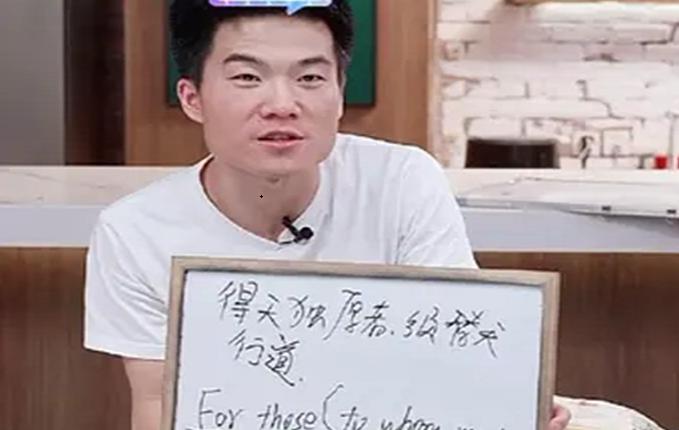 得天独厚者、须替天
行道.
For those (to whom